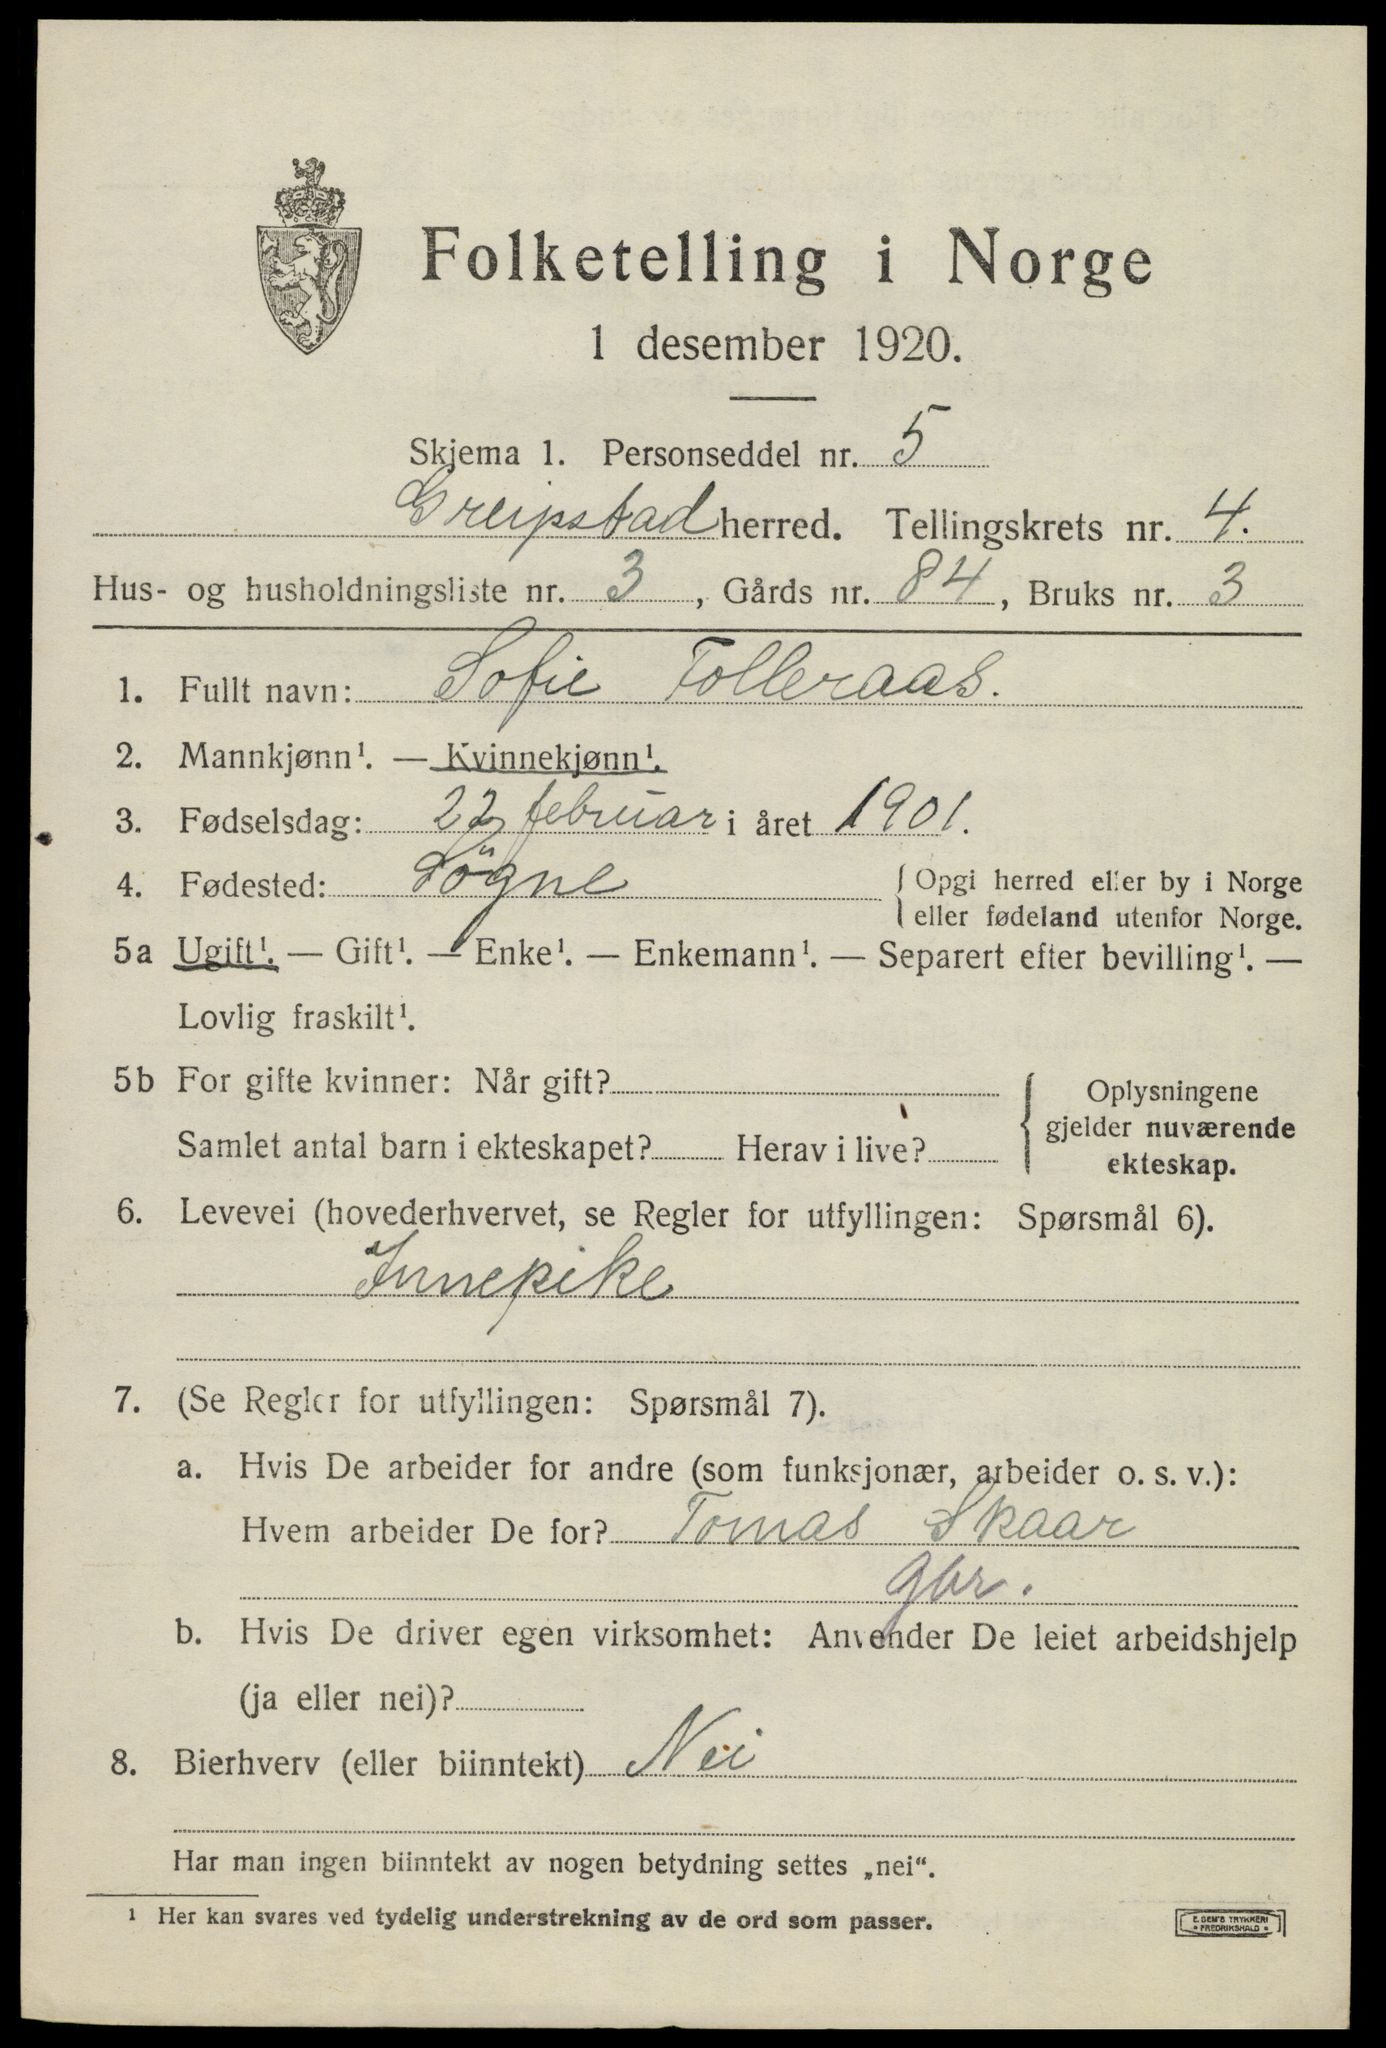 Folketelling i Norge
1 desember 1920.
Skjema 1. Personseddel nr. 5
Greipstad herred. Tellingskrets nr. 4.
Hus- og husholdningsliste nr. 3, Gårds nr. 84, Bruks nr. 3
1. Fullt navn: Sofie Tolleraas.
2. Mannkjønn¹. — Kvinnekjønn¹.
3. Fødselsdag: 22 februar i året 1901.
4. Fødested: Sögne { Opgi herred eller by i Norge
eller fødeland utenfor Norge.
5a Ugift¹. — Gift¹. — Enke¹. — Enkemann¹. — Separert efter bevilling¹. —
Lovlig fraskilt¹.
5b For gifte kvinner: Når gift?
Samlet antal barn i ekteskapet? Herav i live?
{ Oplysningene
gjelder nuværende
ekteskap.
6. Levevei (hovederhvervet, se Regler for utfyllingen: Spørsmål 6).
Innepike
7. (Se Regler for utfyllingen: Spørsmål 7).
a. Hvis De arbeider for andre (som funksjonær, arbeider o. s. v.):
Hvem arbeider De for? Tomas Skaar
gbr.
b. Hvis De driver egen virksomhet: Anvender De leiet arbeidshjelp
(ja eller nei)?
8. Bierhverv (eller biinntekt) Nei
Har man ingen biinntekt av nogen betydning settes „nei“.
¹ Her kan svares ved tydelig understrekning av de ord som passer.
E. SEM'S TRYKKERI
* FREDRIKSHALD *